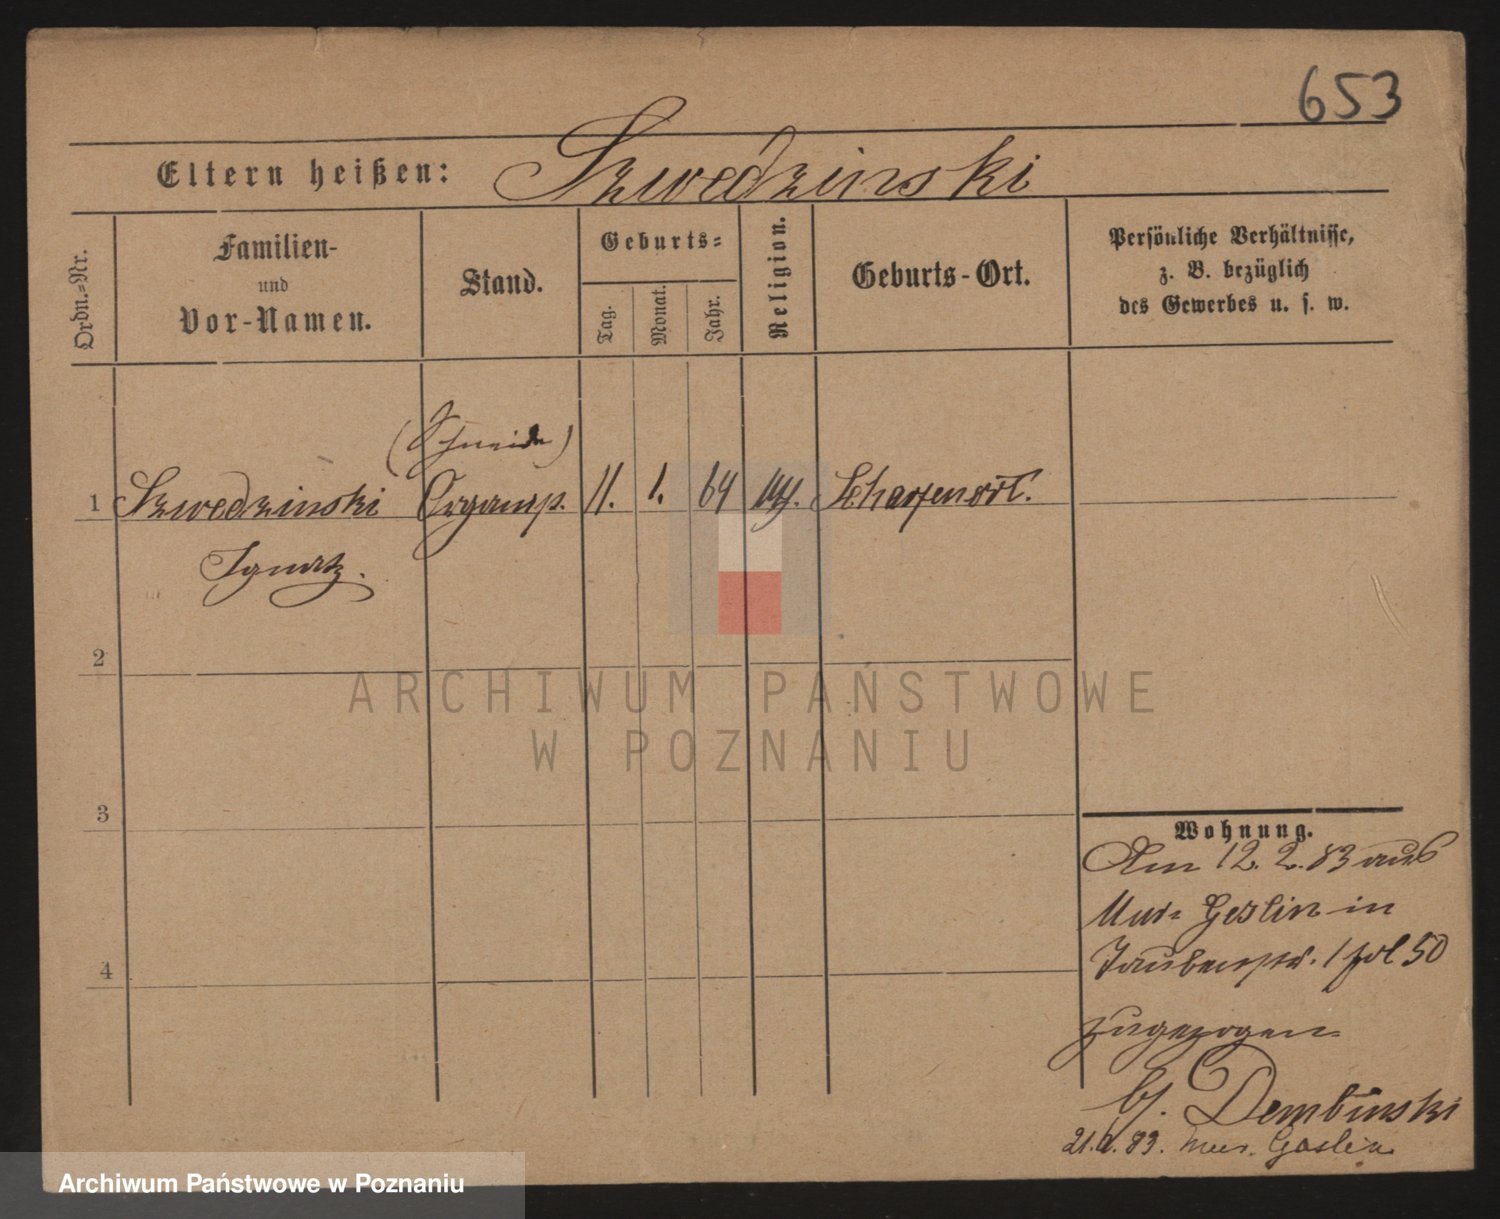 653
Eltern heißen: Szwedzinski
Ordn.-Nr.
Familien-
und
Vor-Namen.
Stand.
Geburts-
Tag.
Monat.
Jahr.
Religion.
Geburts-Ort.
Persönliche Verhältnisse,
z. B. bezüglich
des Gewerbes u. s. w.
(Schneider)
1 Szwedzinski 11. 1. 64 Scharfenort.
Ignatz.
2
ARCHIWUM PAŃSTWOWE
W POZNANIU
3
4
Wohnung.
Am 12. 2. 83 aus
Mur. Goslin in
Taubenstr. 1 fol 50
zugezogen
bj. Dembinski
83. Mur. Goslin
Archiwum Państwowe w Poznaniu